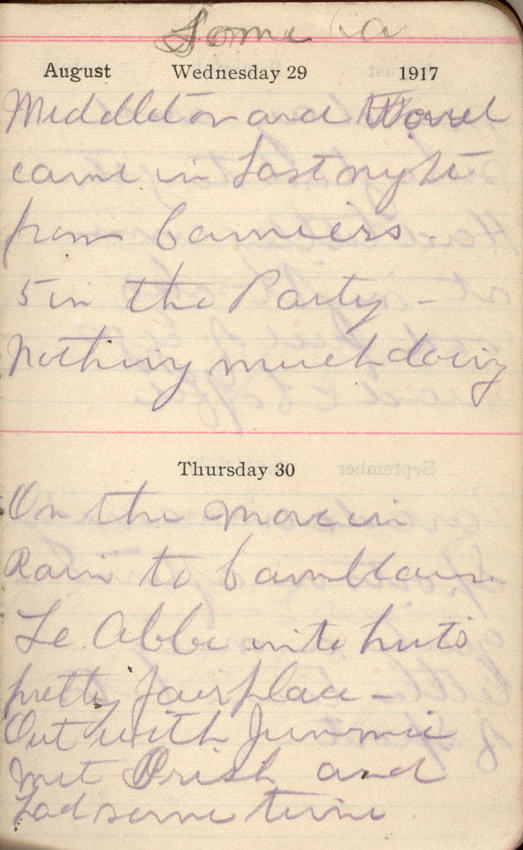 August Wednesday 29 1917
Middleton and
came in Last night
from Camiers.
5 in the Party -
Nothing much doing
Thursday 30
On the move in
Rain to Camblain
Le Abbe into huts
pretty fair place -
Out with Jimmie
met and
had some time